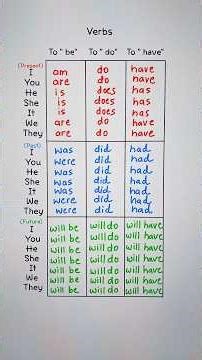 Verbs
To " be" To " do" To " have"
(Present)
I am do have
You are do have
He is does has
She is does has
It is does has
We are do have
They are do have
(Past)
I was did had
You were did had
He was did had
She was did had
It was did had
We were did had
They were did had
(Future)
I will be will do will have
You will be will do will have
He will be will do will have
She will be will do will have
It will be will do will have
We will be will do will have
They will be will do will have